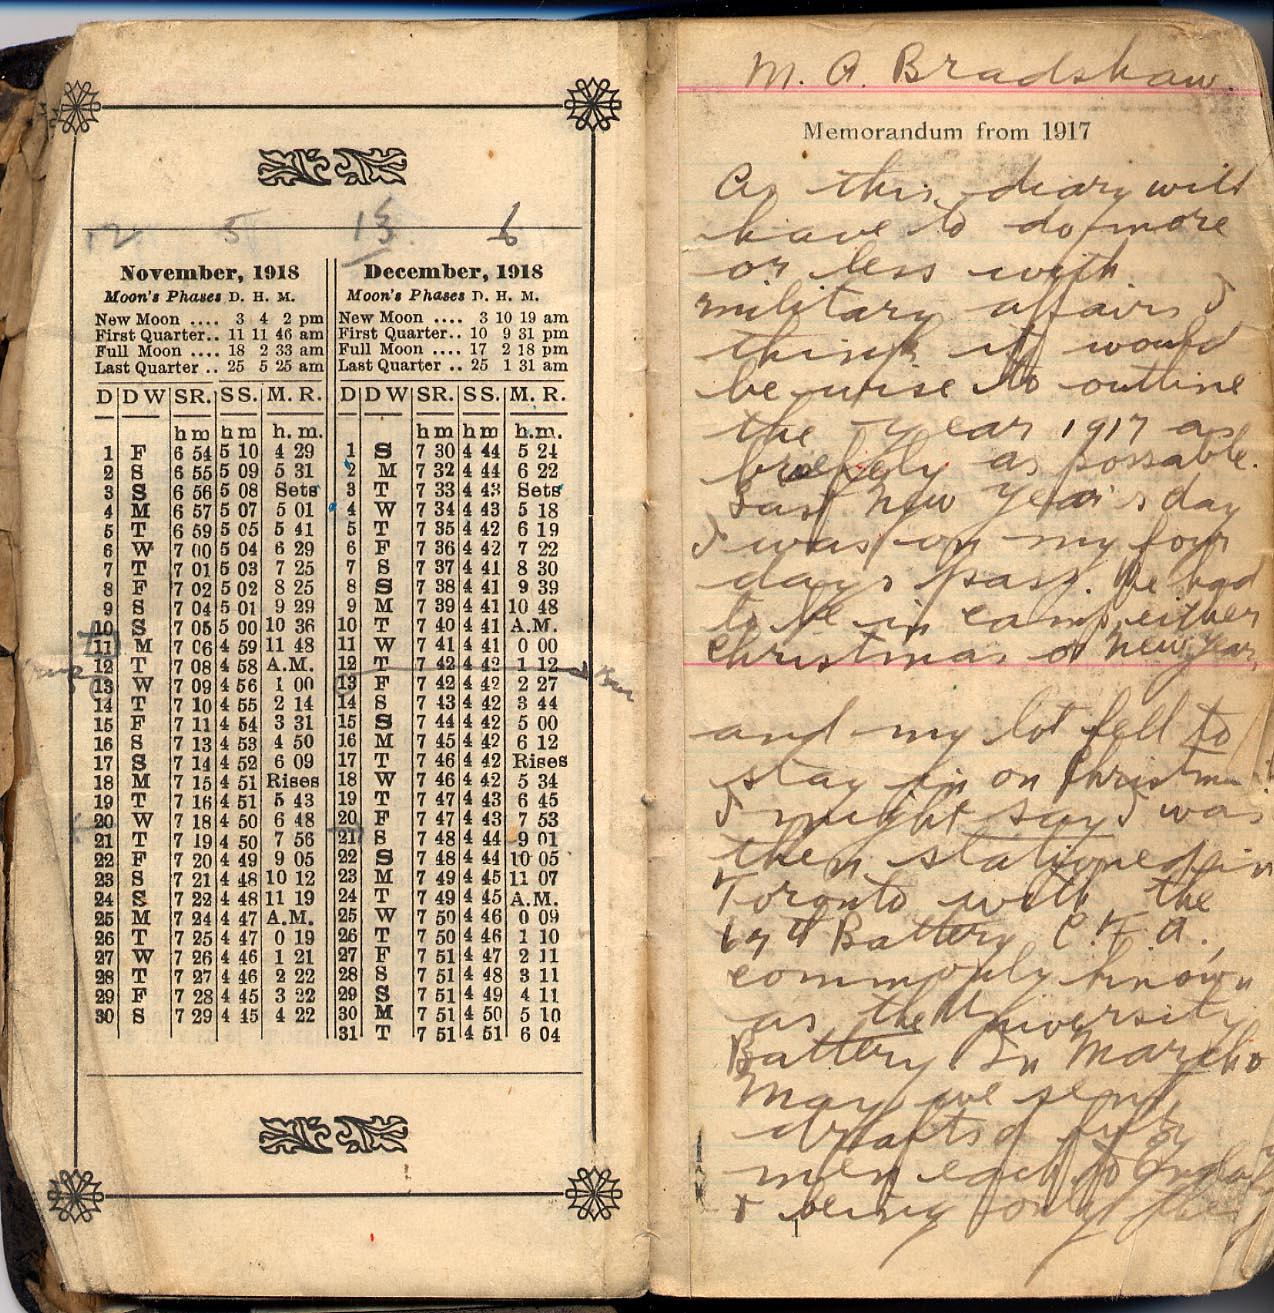 12 5 15 6
November, 1918
Moon's Phases D. H. M.
New Moon .... 3 4 2 pm
First Quarter.. 11 11 46 am
Full Moon .... 18 2 33 am
Last Quarter .. 25 5 25 am
D D W SR. SS. M. R.
h m h m h. m.
1 F 6 54 5 10 4 29
2 S 6 55 5 09 5 31
3 S 6 56 5 08 Sets
4 M 6 57 5 07 5 01
5 T 6 59 5 05 5 41
6 W 7 00 5 04 6 29
7 T 7 01 5 03 7 25
8 F 7 02 5 02 8 25
9 S 7 04 5 01 9 29
10 S 7 05 5 00 10 36
11 M 7 06 4 59 11 48
12 T 7 08 4 58 A.M.
13 W 7 09 4 56 1 00
14 T 7 10 4 55 2 14
15 F 7 11 4 54 3 31
16 S 7 13 4 53 4 50
17 S 7 14 4 52 6 09
18 M 7 15 4 51 Rises
19 T 7 16 4 51 5 43
20 W 7 18 4 50 6 48
21 T 7 19 4 50 7 56
22 F 7 20 4 49 9 05
23 S 7 21 4 48 10 12
24 S 7 22 4 48 11 19
25 M 7 24 4 47 A.M.
26 T 7 25 4 47 0 19
27 W 7 26 4 46 1 21
28 T 7 27 4 46 2 22
29 F 7 28 4 45 3 22
30 S 7 29 4 45 4 22
December, 1918
Moon's Phases D. H. M.
New Moon .... 3 10 19 am
First Quarter.. 10 9 31 pm
Full Moon .... 17 2 18 pm
Last Quarter .. 25 1 31 am
D D W SR. SS. M. R.
h m h m h.m.
1 S 7 30 4 44 5 24
2 M 7 32 4 44 6 22
3 T 7 33 4 43 Sets
4 W 7 34 4 43 5 18
5 T 7 35 4 42 6 19
6 F 7 36 4 42 7 22
7 S 7 37 4 41 8 30
8 S 7 38 4 41 9 39
9 M 7 39 4 41 10 48
10 T 7 40 4 41 A.M.
11 W 7 41 4 41 0 00
12 T 7 42 4 42 1 12
13 F 7 42 4 42 2 27
14 S 7 43 4 42 3 44
15 S 7 44 4 42 5 00
16 M 7 45 4 42 6 12
17 T 7 46 4 42 Rises
18 W 7 46 4 42 5 34
19 T 7 47 4 43 6 45
20 F 7 47 4 43 7 53
21 S 7 48 4 44 9 01
22 S 7 48 4 44 10 05
23 M 7 49 4 45 11 07
24 T 7 49 4 45 A.M.
25 W 7 50 4 46 0 09
26 T 7 50 4 46 1 10
27 F 7 51 4 47 2 11
28 S 7 51 4 48 3 11
29 S 7 51 4 49 4 11
30 M 7 51 4 50 5 10
31 T 7 51 4 51 6 04
M. A. Bradshaw.
Memorandum from 1917
As this diary will
have to do more
or less with
military affairs I
think it would
be wise to outline
the year 1917 as
briefly as possable.
Last New Year's day
I was on my four
days pass. We had
to be in camp either
Christmas or New Years
and my lot fell to
stay in on Christmas
I might say I was
then stationed in
Toronto with the
67th Battery C.F.A.
commonly known
as the University
Battery In March &
May we sent
drafts of fifty
men each to England
& being only the